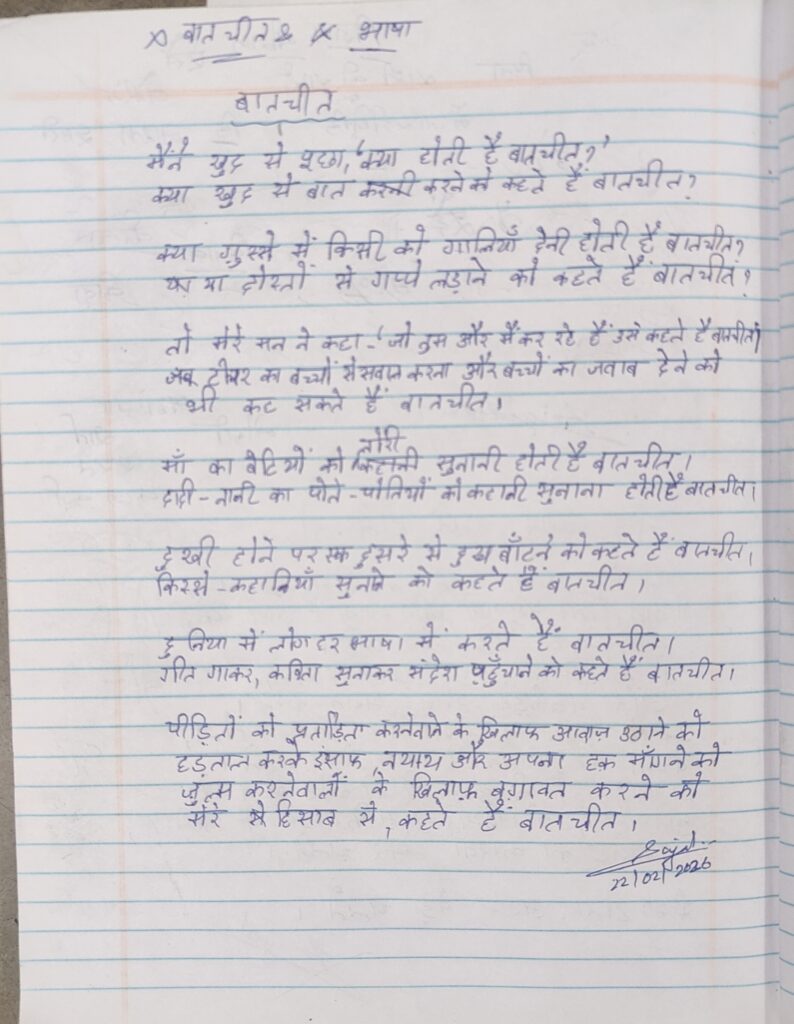 बातचीत & भाषा
बातचीत
मैंने खुद से पूछा, 'क्या होती है बातचीत?'
क्या खुद से बात करने को कहते हैं बातचीत?
क्या गुस्से में किसी को गालियाँ देनी होती है बातचीत?
या दोस्तों से गप्पे लड़ाने को कहते हैं बातचीत?
तो मेरे मन ने कहा - 'जो तुम और मैं कर रहे हैं उसे कहते है बातचीत।
टीचर का बच्चों से सवाल करना और बच्चों का जवाब देने को
भी कह सकते हैं बातचीत।
माँ का बेटियों को लोरी सुनानी होती है बातचीत।
दादी - नानी का पोते - पोतियों को कहानी सुनाना होती है बातचीत।
दुखी होने पर एक दुसरे से दुख बाँटने को कहते हैं बातचीत।
किस्से - कहानियाँ सुनाने को कहते हैं बातचीत।
दुनिया में लोग हर भाषा में करते हैं बातचीत।
गीत गाकर, कविता सुनाकर संदेश पहुँचाने को कहते हैं बातचीत।
पीड़ितों को प्रताड़ित करनेवाले के खिलाफ आवाज़ उठाने को
हड़ताल करके इंसाफ, न्याय और अपना हक़ माँगने को
ज़ुल्म करनेवालों के खिलाफ़ बग़ावत करने को
मेरे हिसाब से, कहते हैं बातचीत।
22/02/2026